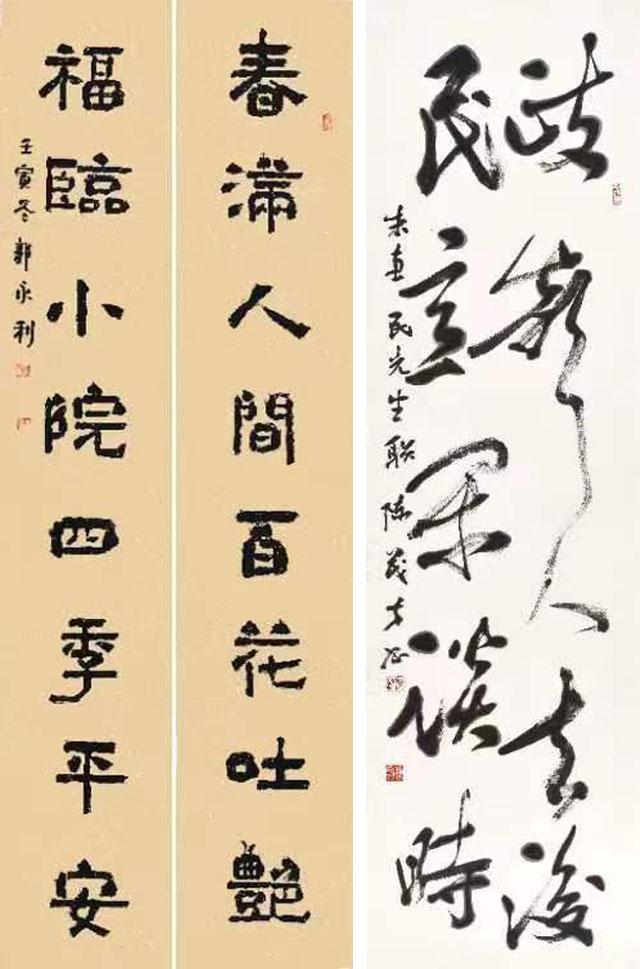 春滿人間百花吐豔
福臨小院四季平安
壬寅冬郭永利
政聲人去後
民意闲谈時
朱惠民先生联 陈茂才书